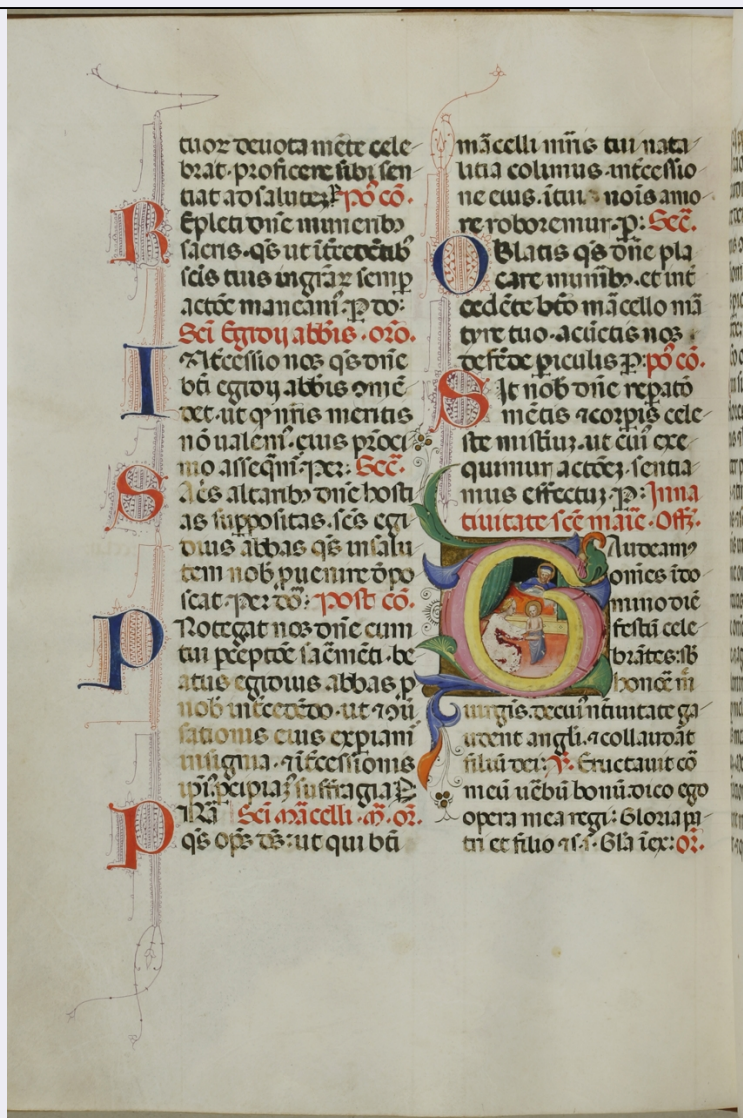 tuor deuota mẽte cele
brat. proficere sibi sen
tiat ad salutez. P Põ cõ.
REpleti dñe muneribꝫ
sacris. qs ut ĩtercedẽtibꝫ
scĩs tuis in grãꝝ semp
actõe maneam᷑. P do:
Scĩ Egidij abbis. orõ.
I&ĩtcessio nos qs dñe
bti egidij abbis ꝯmẽ
det. ut qꝫ nr̃is meritis
nõ ualem᷑. eius pr̃oci
nio asseqm᷑. Per: Sec̃.
Sacis altaribꝫ dñe hosti
as suppositas. scs egi
dius abbas qs in salu
tem nob puenire dpo
scat. Per do: Post cõ.
PRotegat nos dñe cum
tui pceptõe sac̃mẽti. be
atus egidius abbas p
nob intcedẽdo. ut ⁊ ꝯũ
sationis eius expiam᷑
insignia. ⁊ ĩtcessionis
ipi᷑ pcipiaꝫ suffragia P
Scĩ Marcelli. M. or̃.
P qs opš dš: ut qui bti
marcelli mr̃is tui nata
litia colimus. intcessio
ne eius. ĩ tui nois amo
re roboremur. P: Sec̃.
OBlatis qs dñe pla
care munibꝫ. et int
cedẽte bto marcello mar
tyre tuo. a cũctis nos
defẽde piculis P: põ cõ.
SIt nob dñe repatõ
mẽtis ⁊ corpis cele
ste mistiuꝫ. ut cui᷑ exe
quimur actõeꝫ. sentia
mus effectuꝫ. P: In na
tiuitate scẽ marie. Off̃.
GAudeamꝰ
oms ĩ do
mino diẽ
festũ cele
brãtes: sb
honoẽ m
uirgis. de cui᷑ natiuitate ga
udent angli. ⁊ collaudãt
filiũ dei: P̃. Eructauit cõ
meũ uẽbũ bonũ. dico ego
opera mea regi: Gloria pa
tri et filio ⁊ s. s. Gla ĩ ex: or̃.